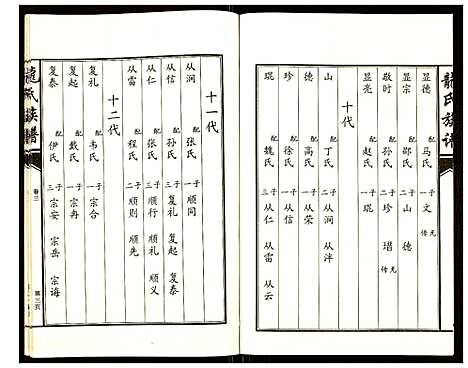 龍氏族谱
显德 配 马氏 子一 文 无传
显宗 配 邵氏 子二 山 德
敬时 配 孙氏 子二 珍 瑨 无传
显亮 配 赵氏 子一 琨
十代
山 配 丁氏 子二 从涧 从泮
德 配 高氏 子一 从荣
珍 配 徐氏 子一 从信
琨 配 魏氏 子三 从仁 从雷 从云
十一代
从涧 配 张氏 子一 顺同
从信 配 孙氏 子三 复礼 复起 复泰
从仁 配 张氏 子三 顺行 顺礼 顺义
从雷 配 程氏 子二 顺则 顺先
十二代
复礼 配 韦氏 子一 宗合
复起 配 戴氏 子一 宗冉
复泰 配 伊氏 子三 宗安 宗岳 宗海
龍氏族譜
卷三
第三页